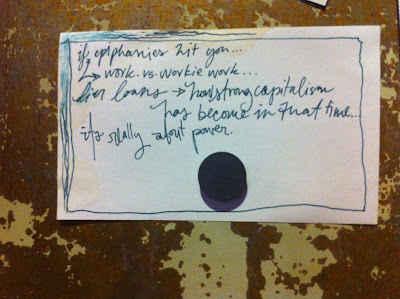 if epiphanies hit you...
→ work. vs. workie work...
loans → how strong capitalism
has become in that time...
it's really about power.